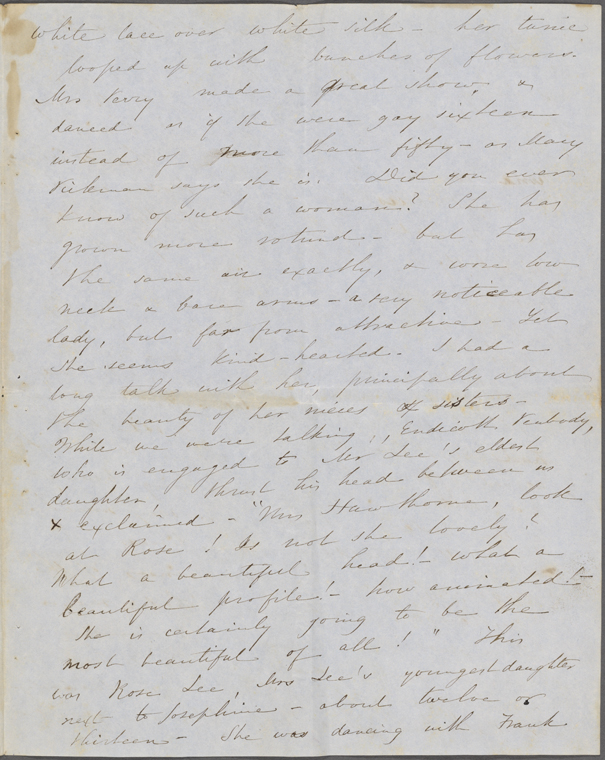 white lace over white silk - her tunic
looped up with bunches of flowers.
Mrs Perry made a great show, &
danced as if she were gay sixteen
instead of more than fifty - as Mary
Pickman says she is. Did you ever
know of such a woman? She has
grown more rotund - but has
the same air exactly, & wore low
neck & bare arms - a very noticeable
lady, but far from attractive - Yet
she seems kind-hearted. I had a
long talk with her, principally about
the beauty of her nieces & sisters -
While we were talking, Endicott Peabody,
who is engaged to Mr Lee's eldest
daughter, thrust his head between us
& exclaimed - "Mrs Hawthorne, look
at Rose! Is not she lovely?
What a beautiful head! - what a
beautiful profile! - how animated! -
She is certainly going to be the
most beautiful of all!" This
was Rose Lee, Mrs Lee's youngest daughter
next to Josephine - about twelve or
thirteen - She was dancing with Frank